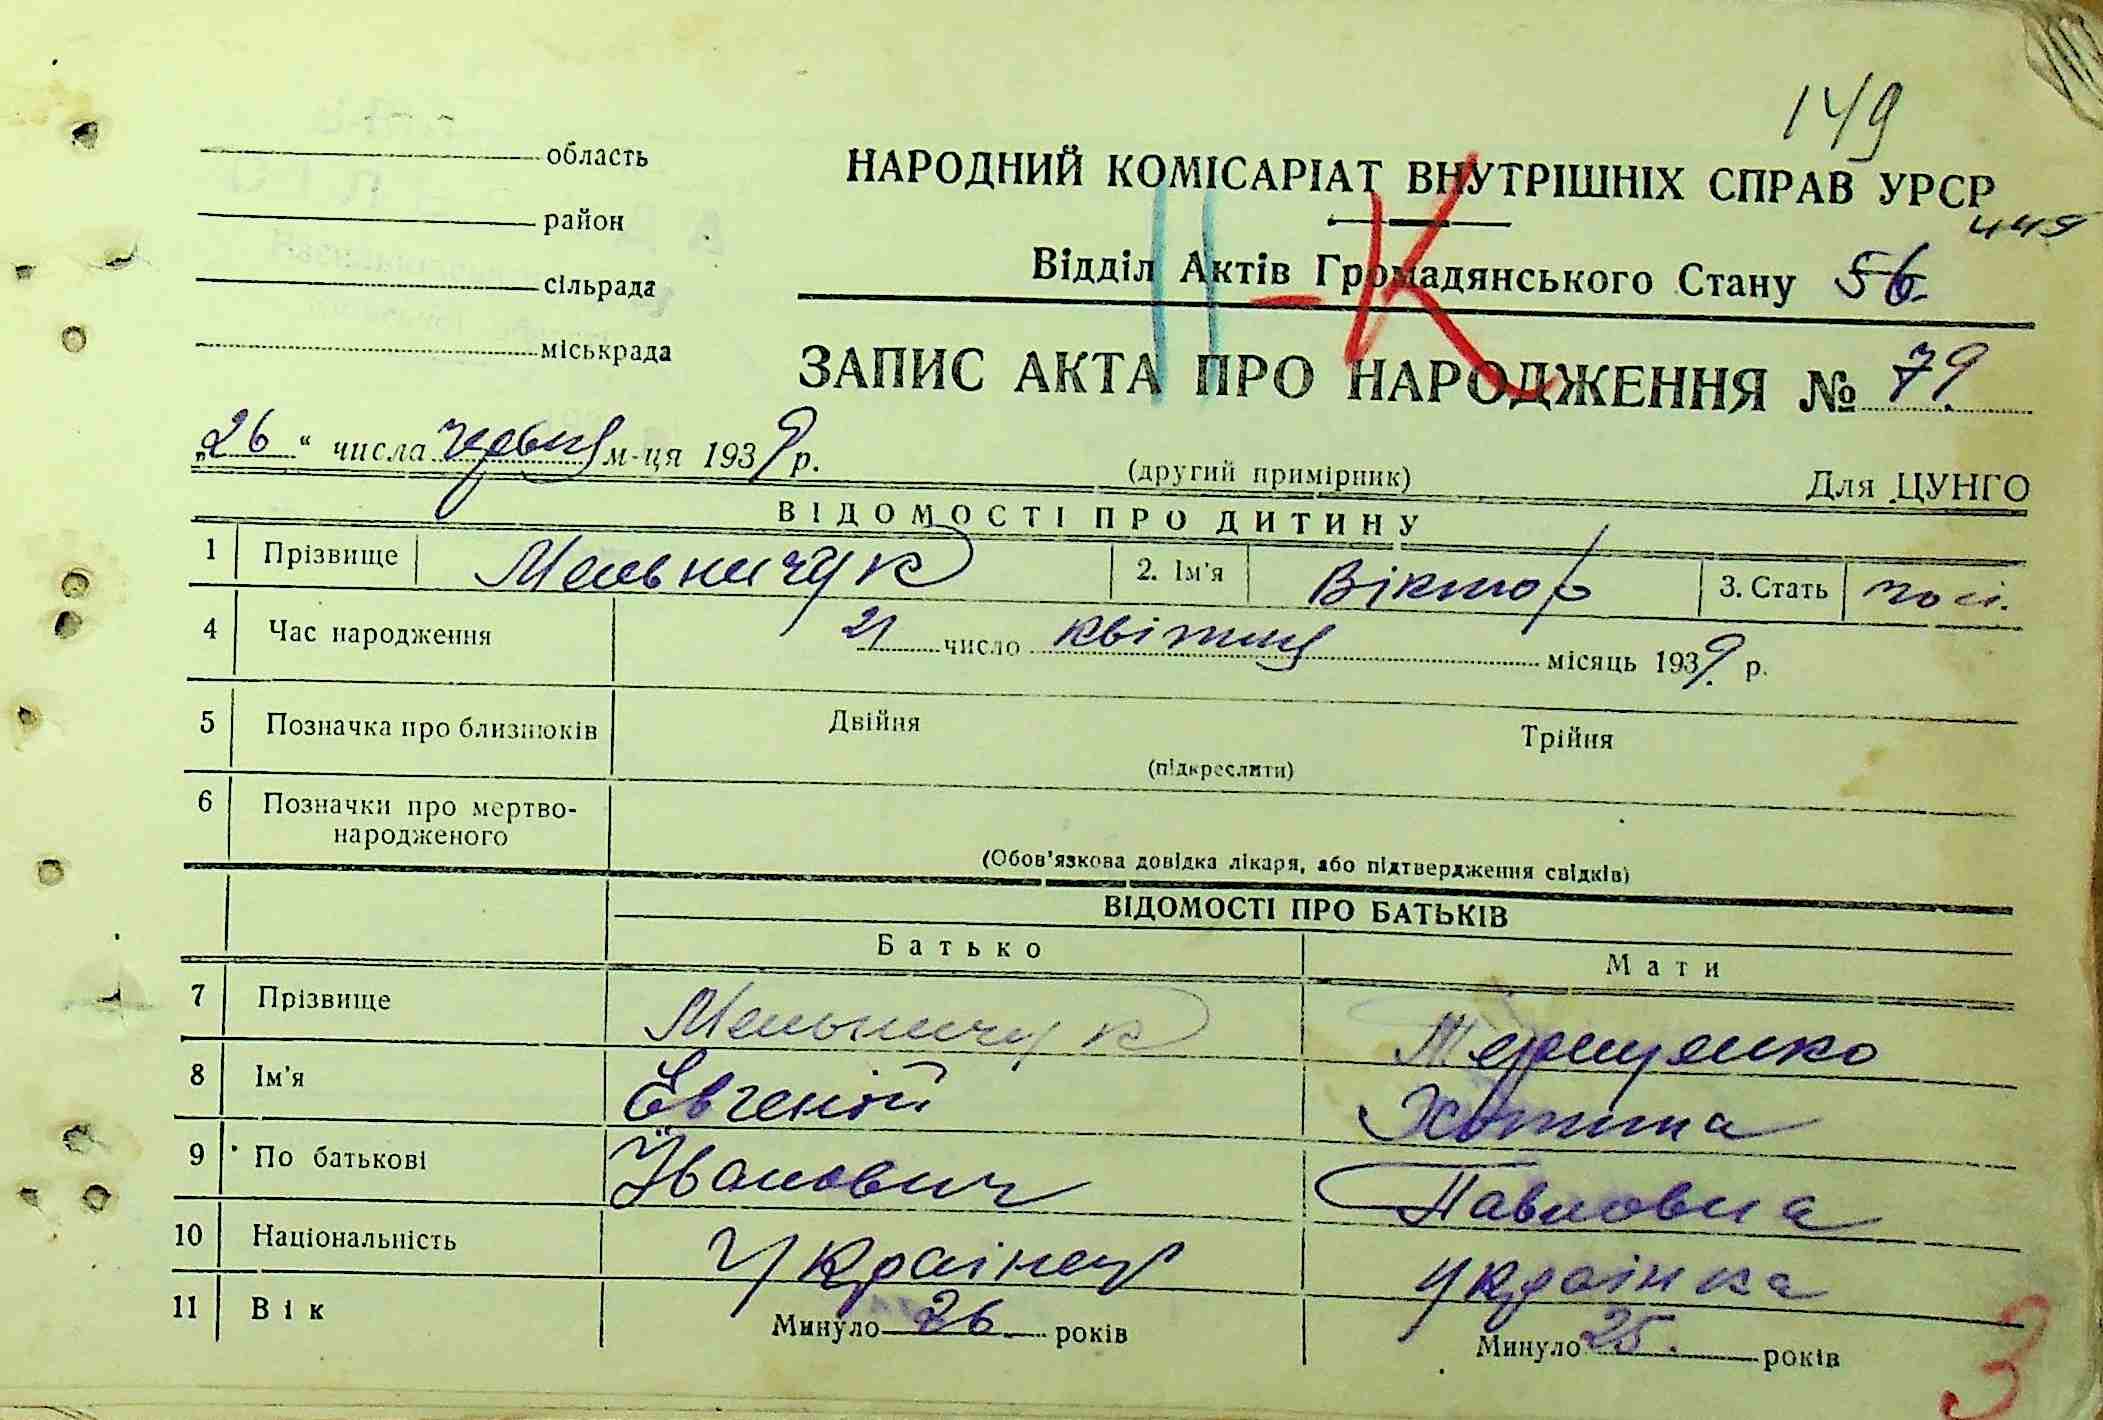 149
область
район
сільрада
міськрада
НАРОДНИЙ КОМІСАРІАТ ВНУТРІШНІХ СПРАВ УРСР
К
449
Відділ Актів Громадянського Стану 56
ЗАПИС АКТА ПРО НАРОДЖЕННЯ № 79.
„26“ числа червня м-ця 1939 р.
(другий примірник) Для ЦУНГО
ВІДОМОСТІ ПРО ДИТИНУ
1 Прізвище Мельничук 2. Ім'я Віктор 3. Стать чол.
4 Час народження 21 число квітня місяць 1939. р.
5 Позначка про близнюків Двійня Трійня
(підкреслити)
6 Позначки про мертво-
народженого
(Обов'язкова довідка лікаря, або підтвердження свідків)
ВІДОМОСТІ ПРО БАТЬКІВ
Батько Мати
7 Прізвище Мельничук Терещенко
8 Ім'я Евгеній
9 По батькові Іванович Павловна
10 Національність Українец українка
11 Вік Минуло 26 років Минуло 25. років
3